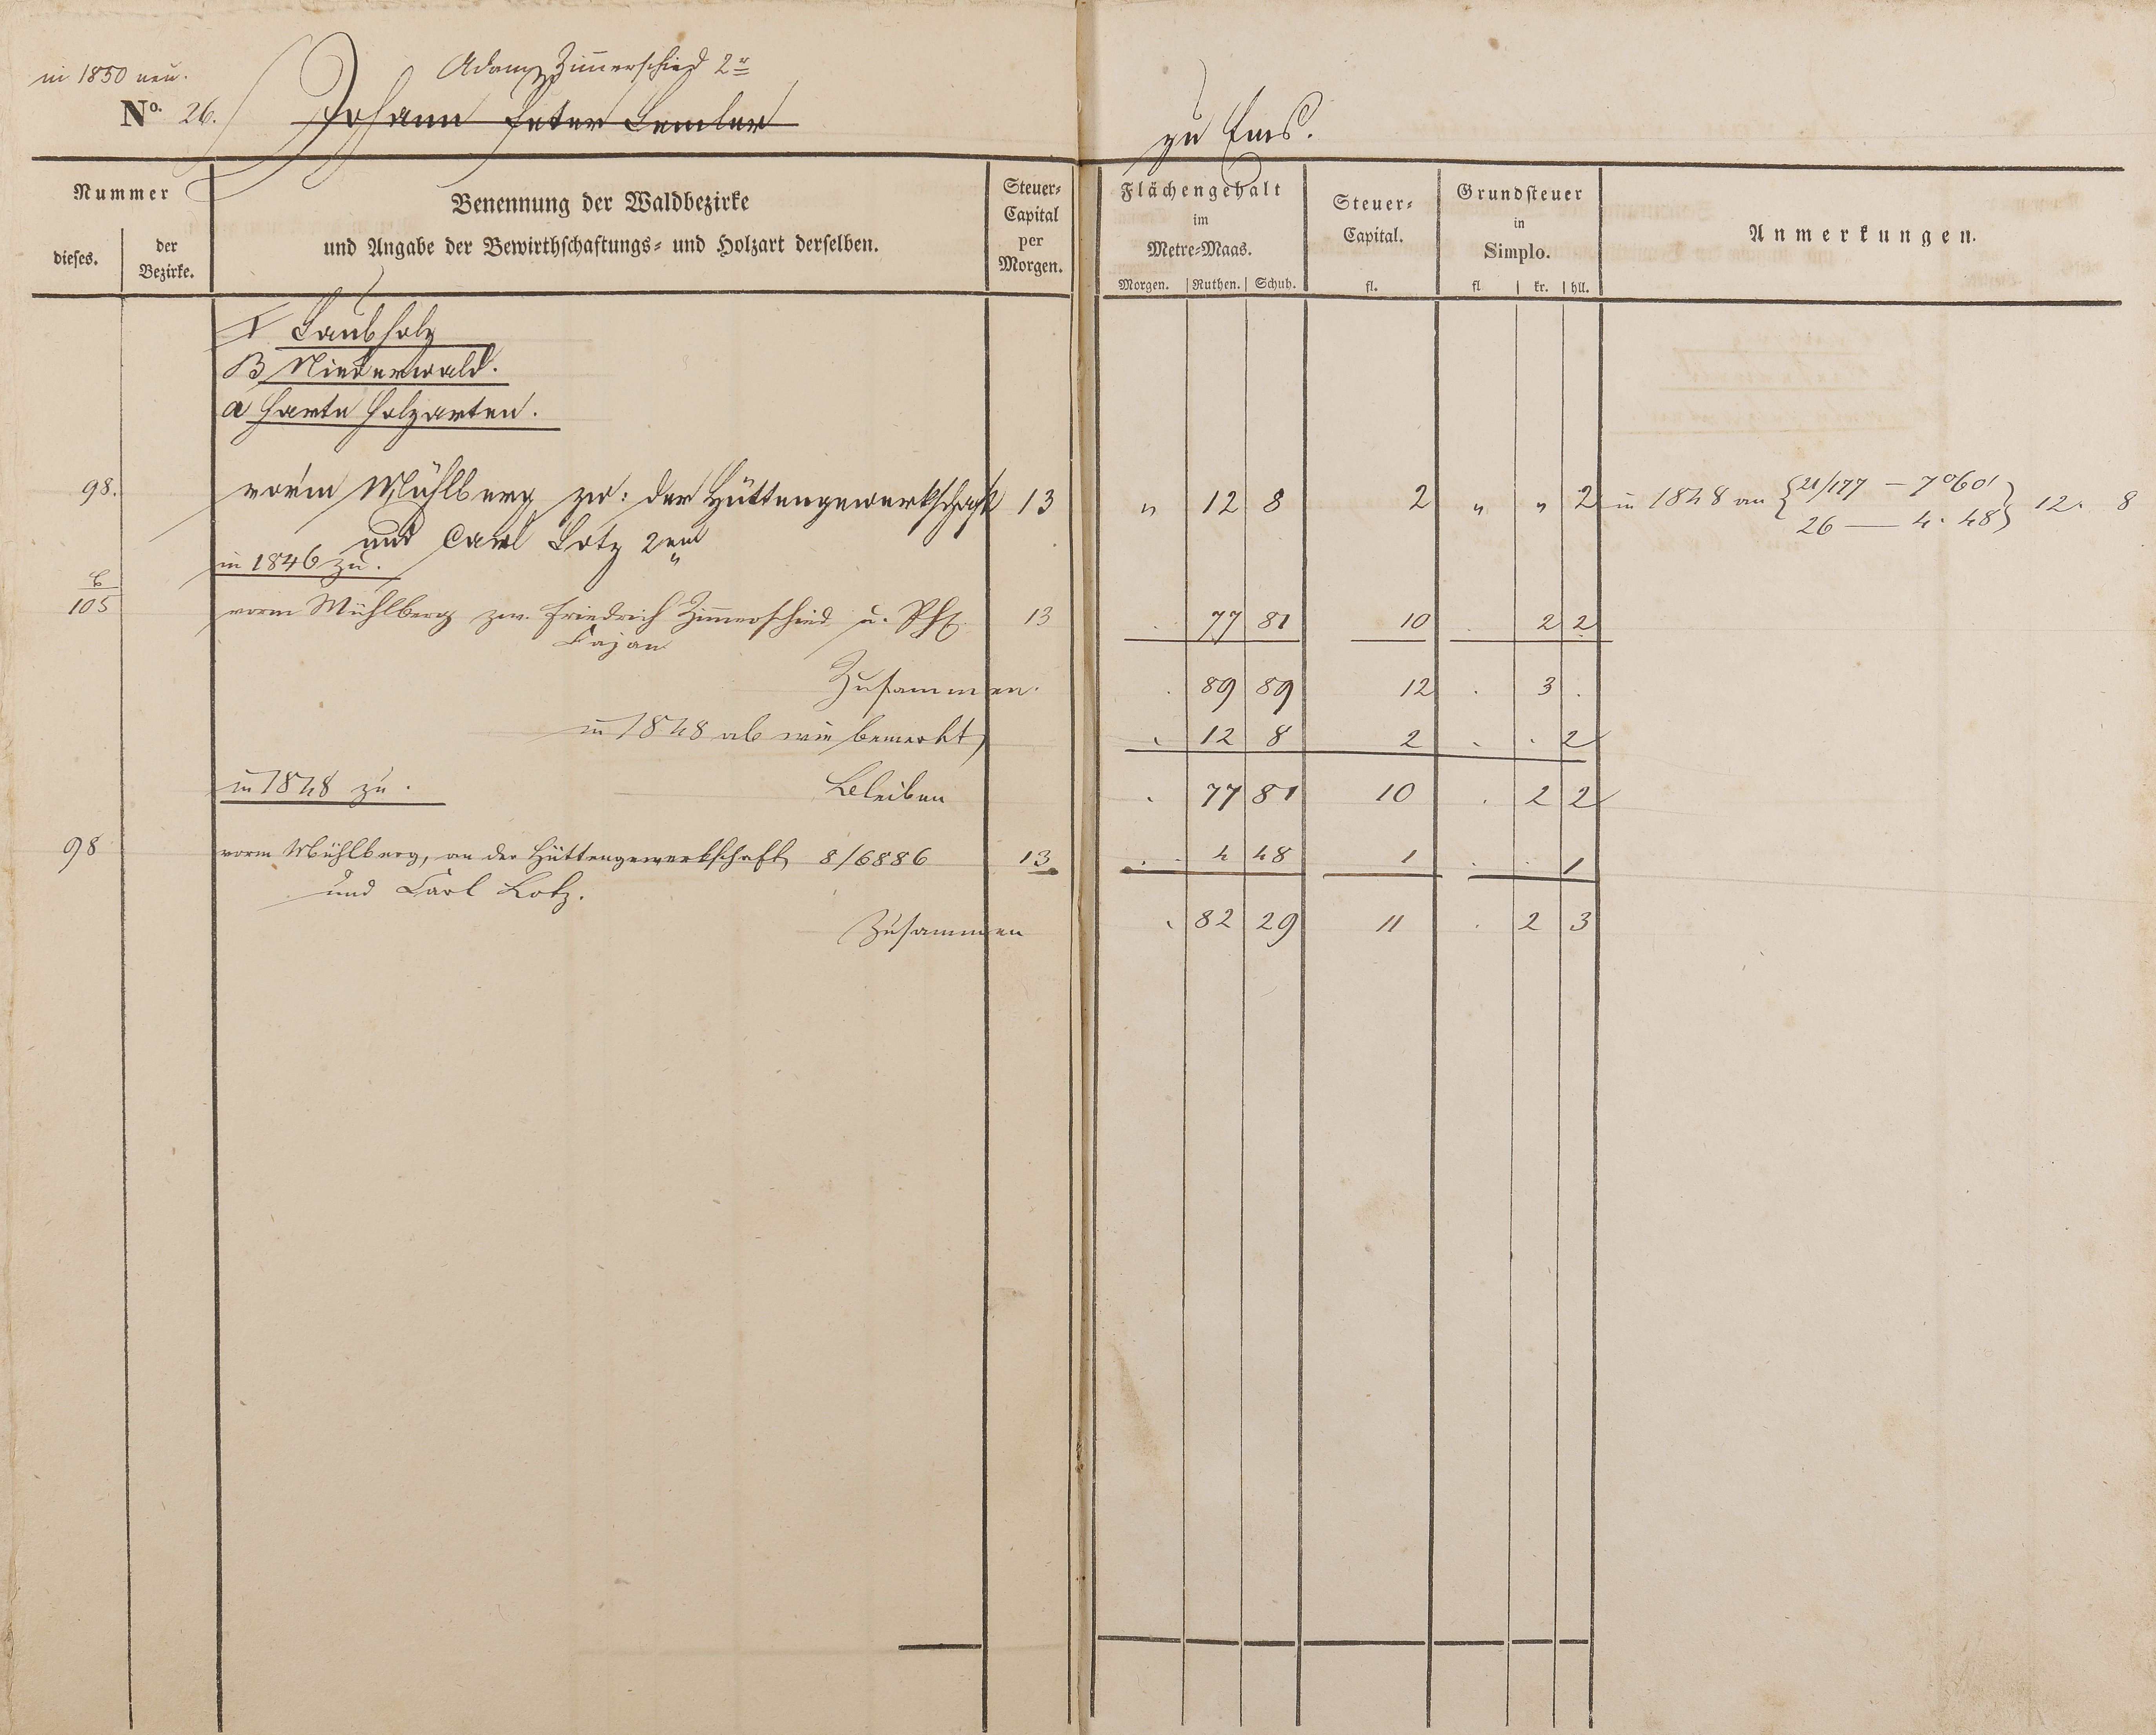 in 1850 neu.
Adam Zim̄erschied 2r
No. 26.
Johann Peter Lemler
zu Ems.
Nummer
dieses.
der Bezirke.
Benennung der Waldbezirke
und Angabe der Bewirthschaftungs- und Holzart derselben.
Steuer-
Capital
per
Morgen.
Flächengehalt
im
Metre-Maas.
Morgen. Ruthen. Schuh.
Steuer-
Capital.
fl.
Grundsteuer
in
Simplo.
fl kr. hll.
Anmerkungen.
I Laubholz
B Niederwald.
a Harte Holzarten.
98. vor'm Mühlberg zw: der Hüttengewerkschaft 13 " 12 8 2 " " 2 in 1848 an {21/177 — 7°60' 12. 8
und Carl Lotz 2ten 26 — 4. 48}
in 1846 zu.
6/105 vorm Mühlberg zw. Friedrich Zim̄erschied u. Phl. 13 . 77 81 10 . 2 2
Cajan
Zusammen. . 89 89 12 . 3 .
in 1848 ab wie bemerkt, . 12 8 2 . . 2
in 1848 zu. Bleiben . 77 81 10 . 2 2
98 vorm Mühlberg, an der Hüttengewerkschaft 8/6886 13 . 4 48 1 . . 1
und Carl Lotz.
Zusammen . 82 29 11 . 2 3